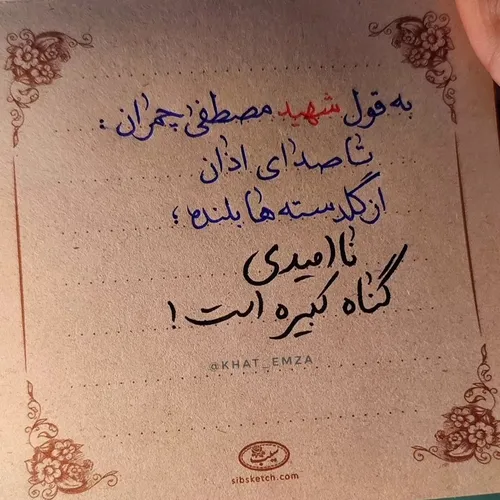 به قول شهید مصطفی چمران :
تا صدای اذان
از گلدسته ها بلنده ؛
ناامیدی
گناه کبیره است !
@KHAT_EMZA
سیب
sibsketch.com